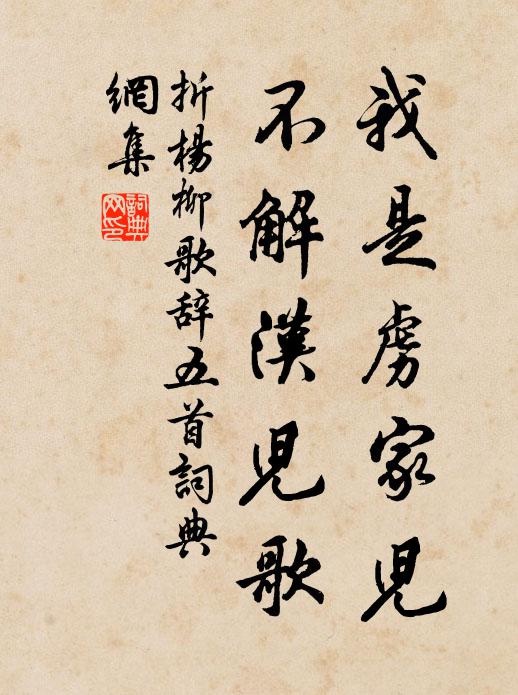 我是虏家兒
不解漢兒歌
折楊柳歌辞五首詞典
網集
詞典
网印